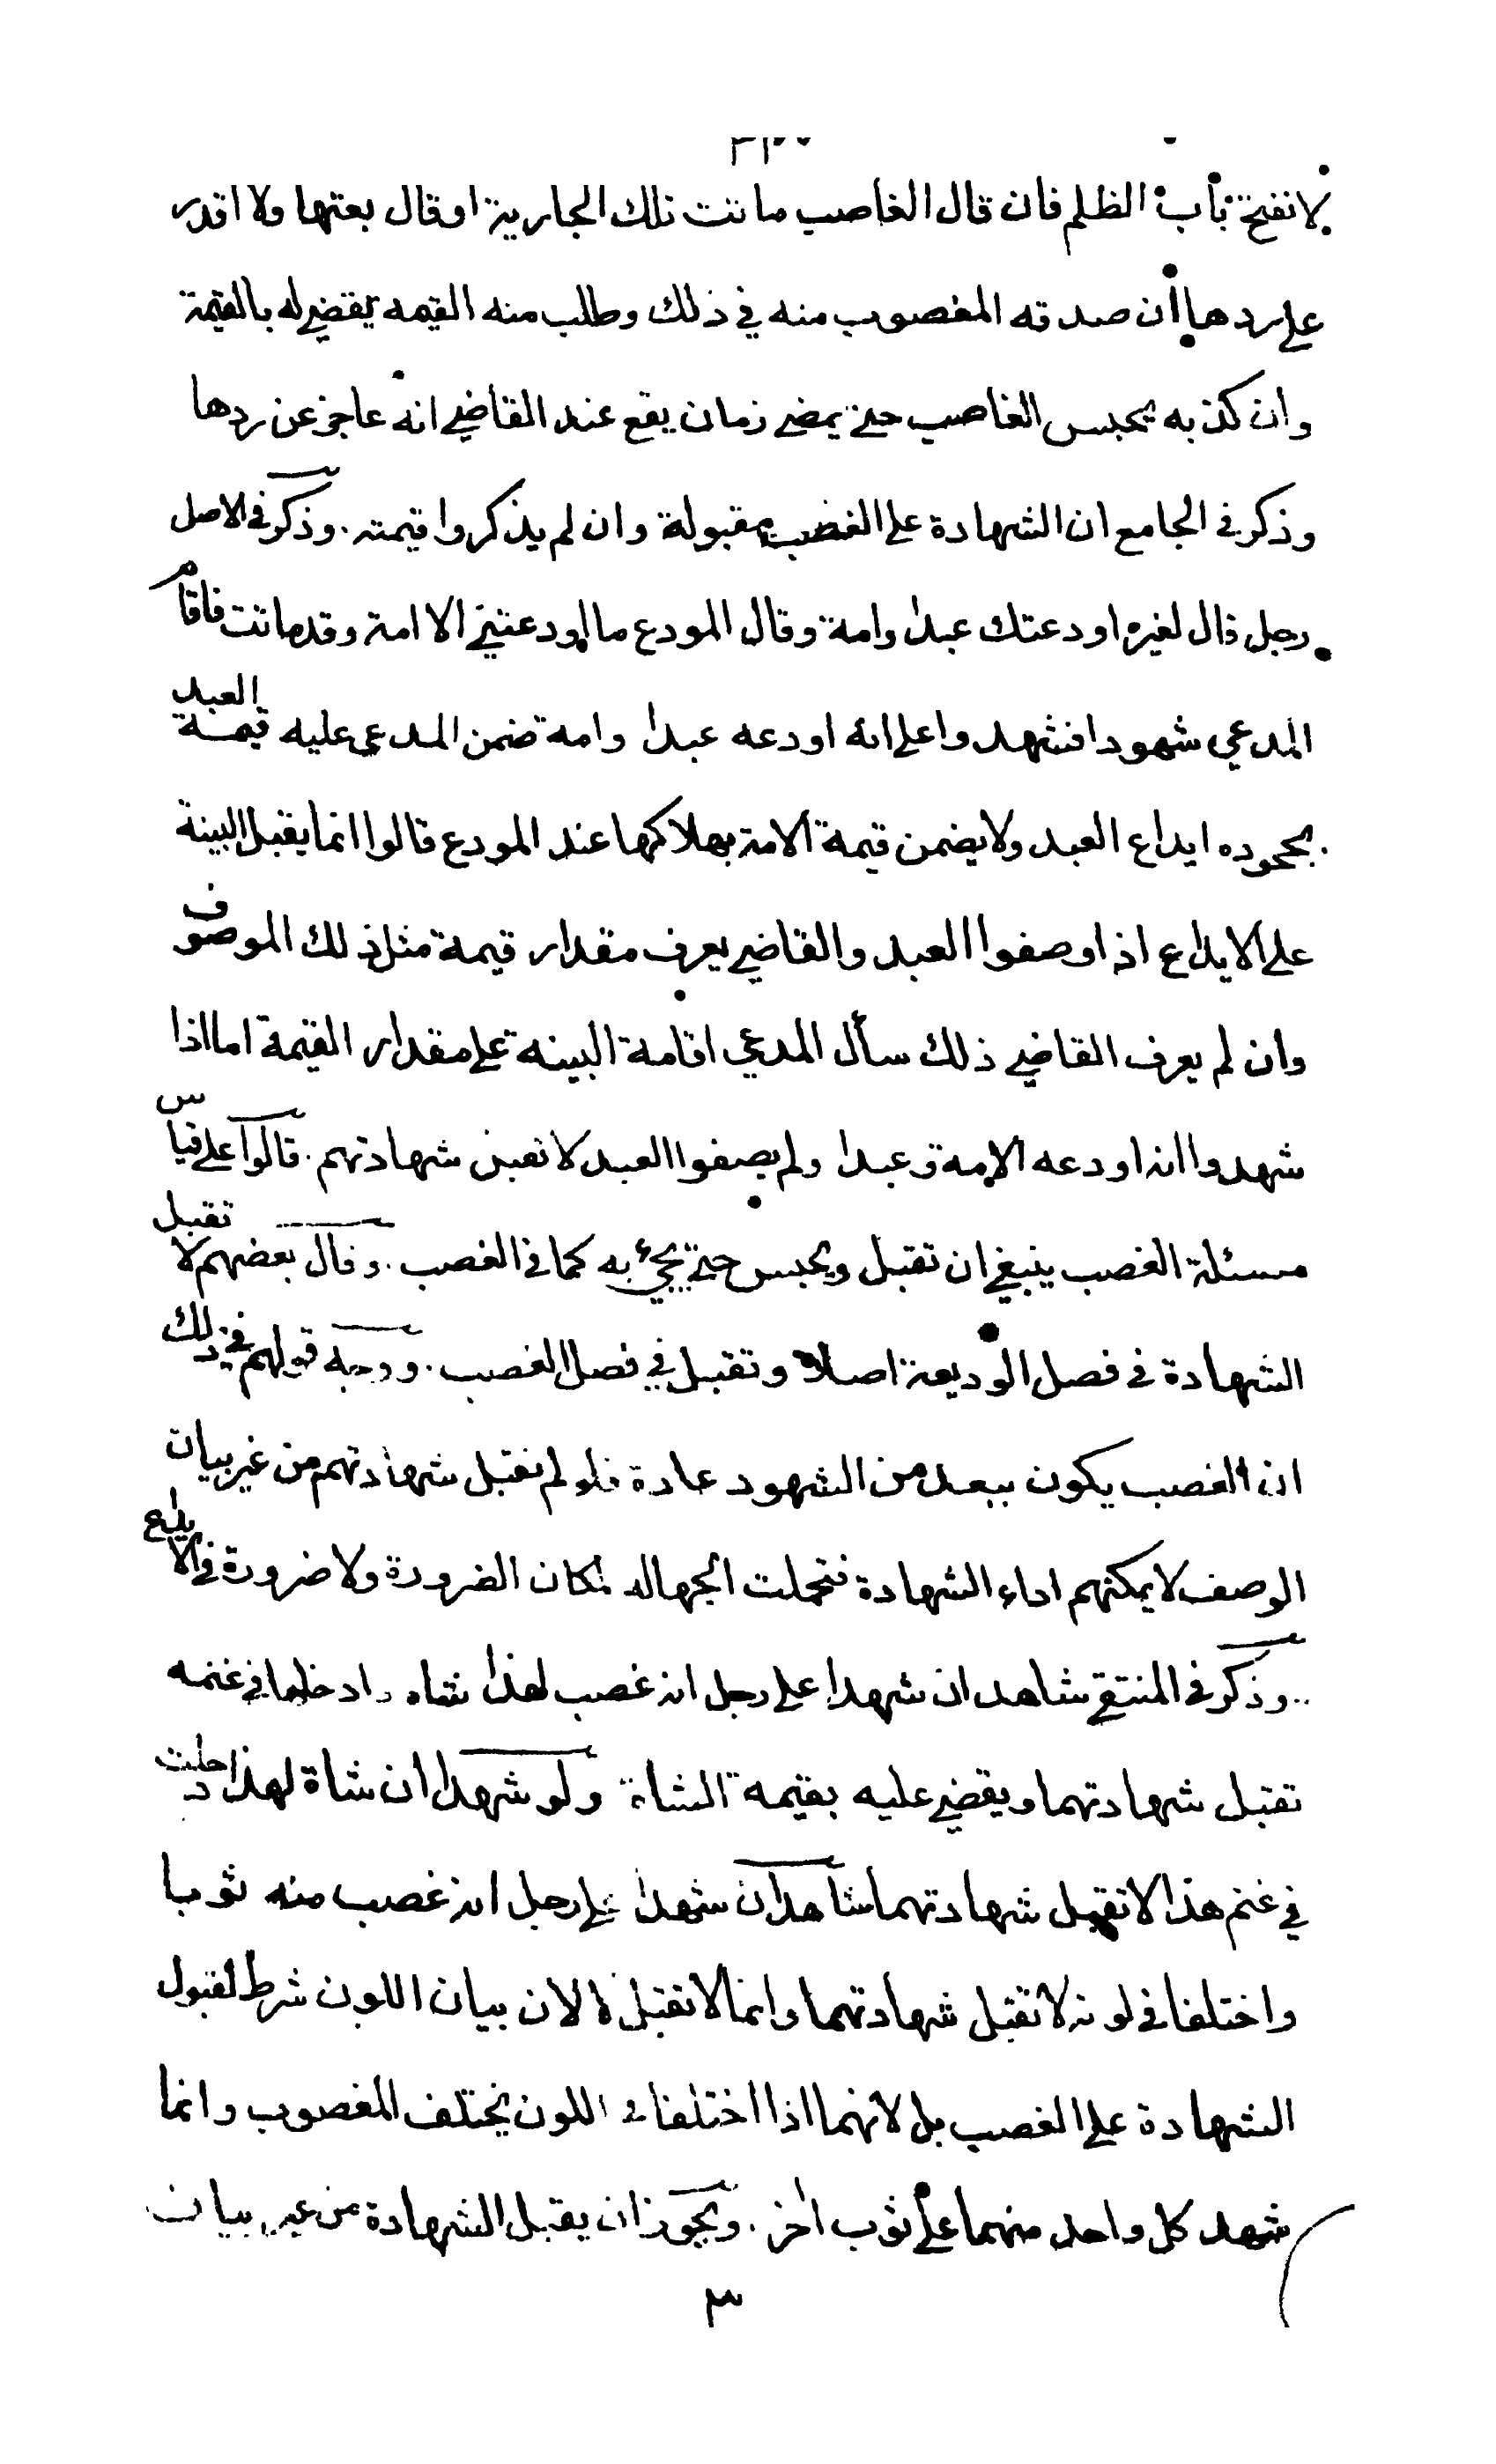 لانفتح باب الظلم فان قال الغاصب ماتت تلك الجارية اوقال بعتها ولا اقدر
على ردها ان صدقه المغصوب منه في ذلك وطلب منه القيمه يقضي له بالقيمة
وان كذبه يحبس الغاصب حتى يمضي زمان يقع عند القاضي انه عاجز عن ردها
وذكر في الجامع ان الشهادة على الغصب مقبولة وان لم يذكروا قيمته . وذكر في الاصل
رجل قال لغيره اودعتك عبدا وامة وقال المودع ما اودعتني الا امة وقد ماتت فاقام
المدعي شهودا فشهدوا على انه اودعه عبدا وامة ضمن المدعى عليه قيمة العبد
بجحوده ايداع العبد ولا يضمن قيمة الامة بهلاكها عند المودع قالوا انما يقبل البينة
على الايداع اذا وصفوا العبد والقاضي يعرف مقدار قيمة مثل ذلك الموصوف
وان لم يعرف القاضي ذلك سأل المدعي اقامة البينة على مقدار القيمة اما اذا
شهدوا انه اودعه الامة وعبدا ولم يصفوا العبد لا تقبل شهادتهم . قالوا على قياس
مسئلة الغصب ينبغي ان تقبل ويحبس حتى يجيء به كما في الغصب . وقال بعضهم لا تقبل
الشهادة في فصل الوديعة اصلا وتقبل في فصل الغصب . ووجه قولهم في ذلك
ان الغصب يكون ببعد من الشهود عادة فلو لم نقبل شهادتهم من غير بيان
الوصف لا يمكنهم اداء الشهادة فتحملت الجهالة لمكان الضرورة ولا ضرورة في الايداع
وذكر في المنتقى شاهدان شهدا على رجل انه غصب لهذا شاه وادخلها في غنمه
تقبل شهادتهما ويقضي عليه بقيمة الشاة ولو شهدا ان شاة لهذا دخلت
في غنم هذا لا تقبل شهادتهما شاهدان شهدا على رجل انه غصب منه ثوبا
واختلفا في لونه لا تقبل شهادتهما وانما لا تقبل لا لان بيان اللون شرط لقبول
الشهادة على الغصب بل لانهما اذا اختلفا في اللون يختلف المغصوب وانما
شهد كل واحد منهما على ثوب اخر . ويجوز ان يقبل الشهادة من غير بيان